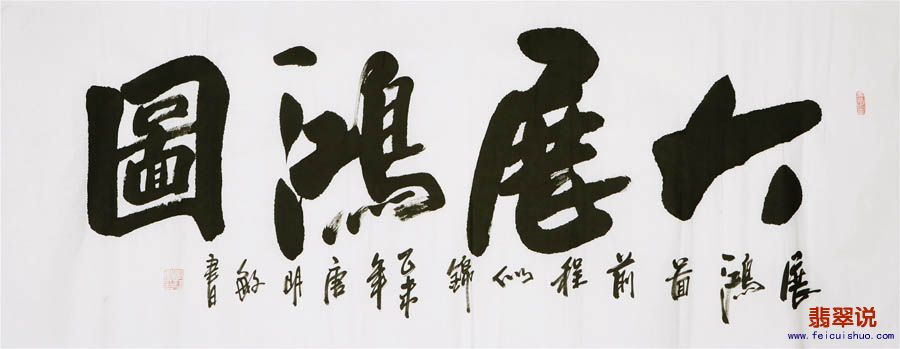 大展鴻圖
展鴻圖前程似錦乙未年唐明敏書
翡翠说
www.feicuishuo.com